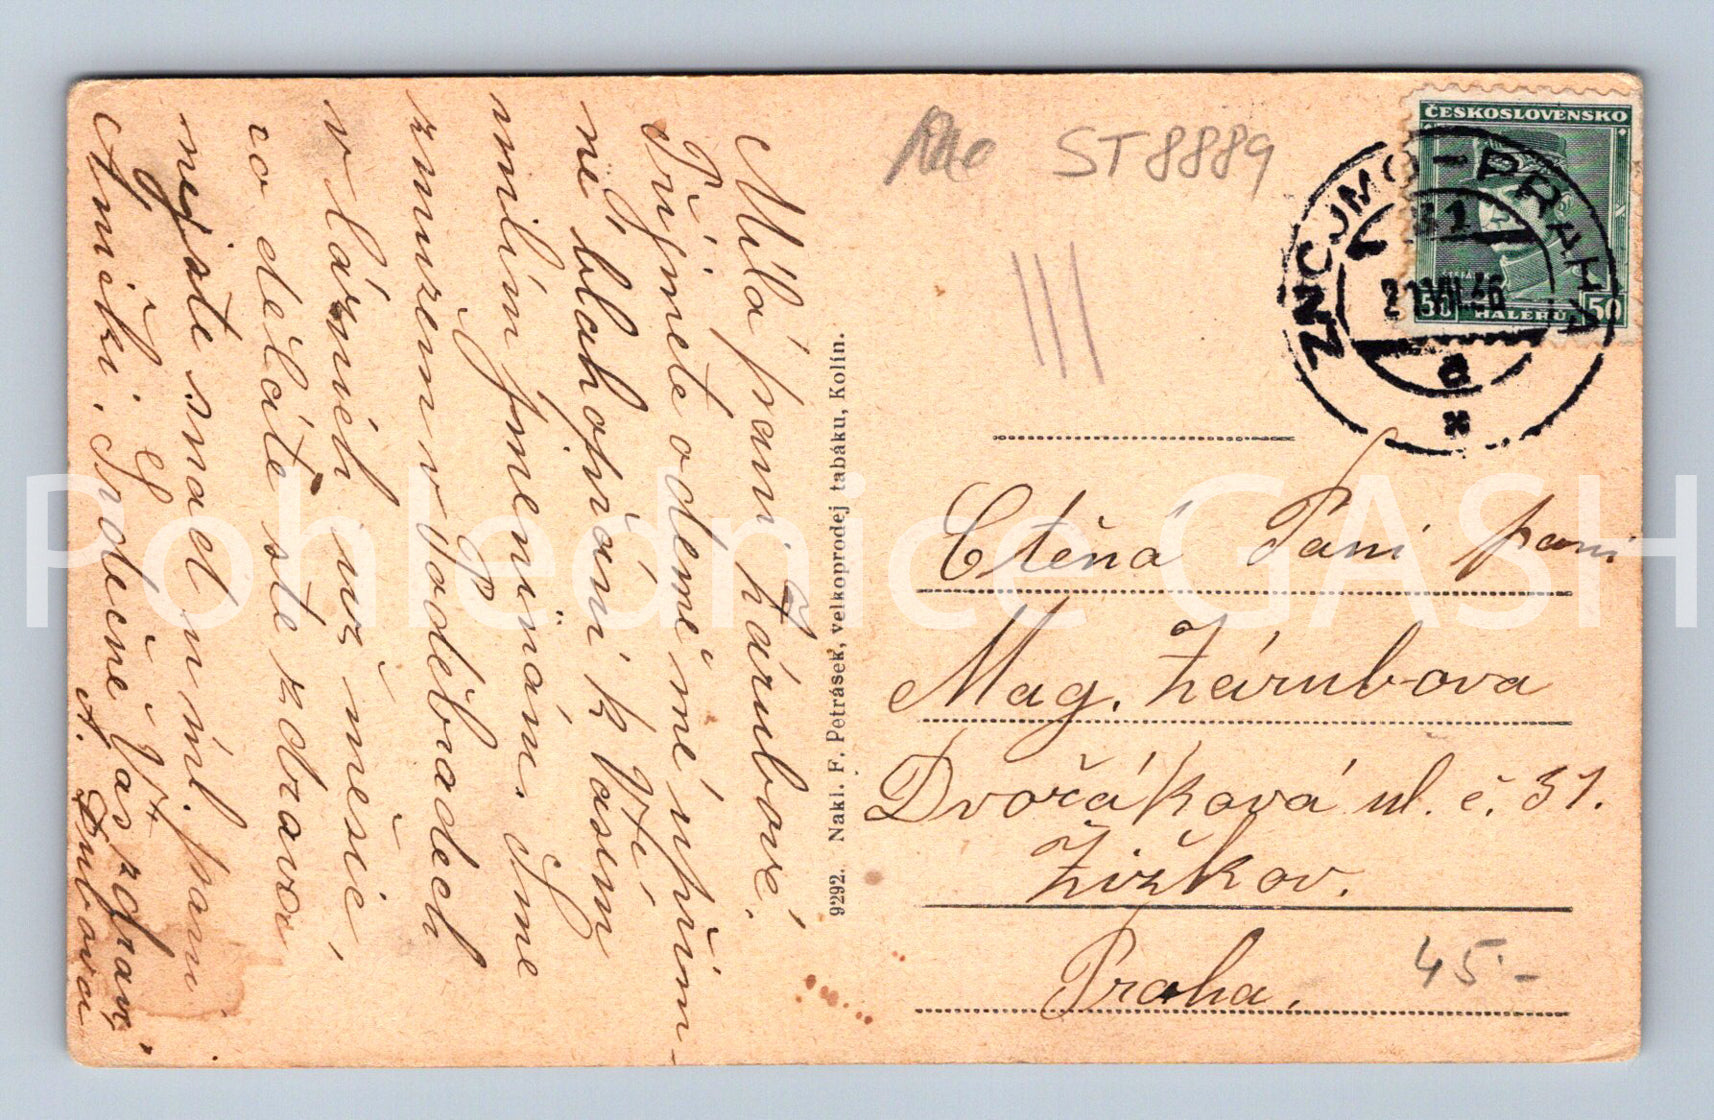 Milá paní Zárubové.
Přijměte odemě mé upřím-
né blahopřání k Vašim
milím jmeninám. Sme
z mužem v Poděbradech
v lázních už měsíc,
co děláte ste zdrava
nejste snad v ml. paní
Srdečně Vás zdraví
A. Dubova
9292. Nakl. F. Petrásek, velkoprodej tabáku, Kolín.
ST8889
ČESKOSLOVENSKO
50 HALÉŘŮ 50
ZNOJMO - PRAHA
31
a
Ctěná Paní paní
Mag. Zárubova
Dvořáková ul. č. 31.
Žižkov.
Praha.
45.-
Pohlednice GASH